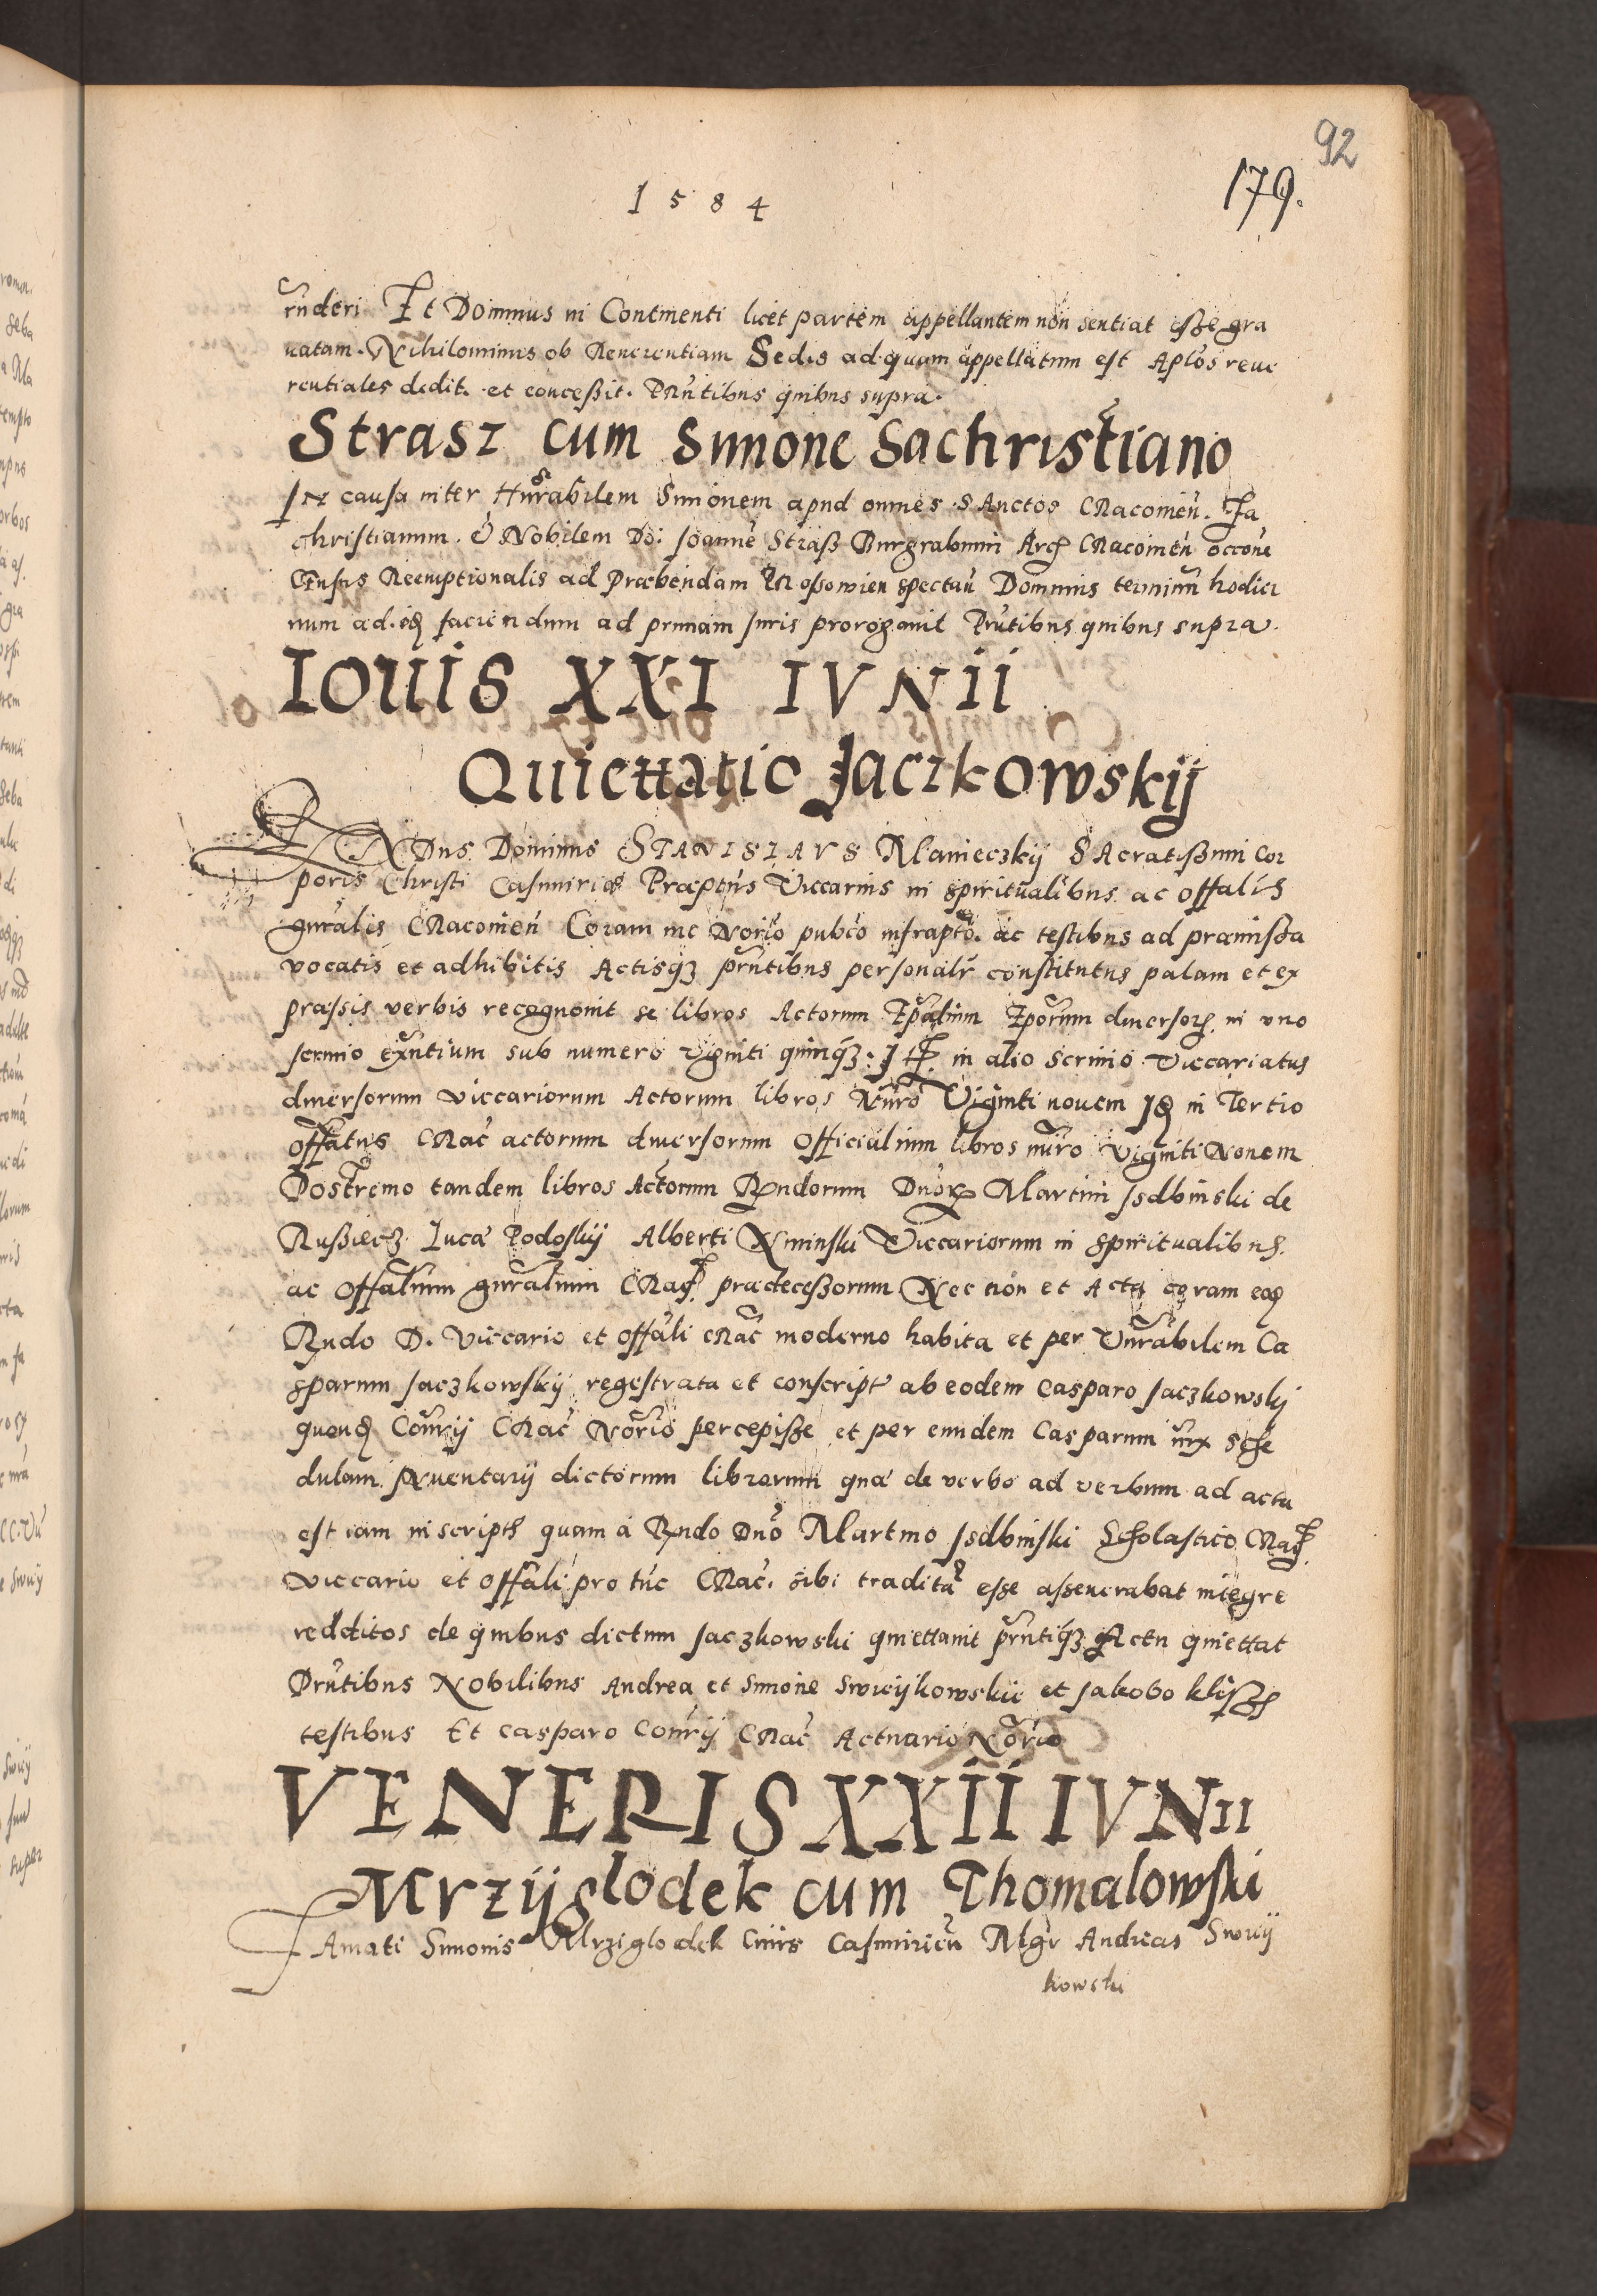 92
179.
1584
rnderi Et Dominus in Continenti licet partem appellantem non sentiat esse gra
uatam. Nihilominus ob Reuerentiam Sedis ad quam appellatum est Aplos reue
rentiales dedit. et concessit. Prntibus quibus supra.
Strasz cum Simone Sachristiano
IN causa inter Hnrabilem Simonem apud omnes SAnctos CRacouien. Sa
christianum. et Nobilem Do: Joanne Strass Burgrabium Arcis CRacouien occone
Census Reemptionalis ad Præbendam Rossowien spectan Dominus terminum hodier
num ad id faciendum ad primam Juris prorogauit Prntibus quibus supra.
IOVIS XXI IVNII
Quiettatio Jaczkowskij
RNDus Dominus STANISLAVS Manieczkij SAcratissimi Cor
poris Christi Casimiriæ Præptus Viccarius in spiritualibus ac offalis
gnralis CRacouien Coram me Norio pubco infrapto. ac testibus ad præmissa
vocatis et adhibitis Actisq3 prntibus personalr constitutus palam et ex
præssis verbis recognouit se libros Actorum Epalium Eporum diuersorum in vno
scrinio exntium sub numero viginti quinq3: It. in alio scrinio Viccariatus
diuersorum viccariorum Actorum libros Nuro Viginti nouem It in Tertio
offatus CRac actorum diuersorum Officialium libros nuro viginti Nouem
Postremo tandem libros Actorum Rndorum Dnorum Martini Jsdbinski de
Russiecz Lucæ Podoskij Alberti Kminski Viccariorum in spiritualibus.
ac Offalium gnralium CRac prædecessorum Nec non et Acta coram eod
Rndo D. Viccario et offali CRac moderno habita et per Vnrabilem Ca
sparum Jaczkowskij regestrata et conscripta ab eodem Casparo Jaczkowskj
quond Consrij CRac Norio percepisse et per eundem Casparum iux sche
dulam JNuentarij dictorum librorum quæ de verbo ad verbum ad acta
est iam inscripta quam a Rndo Dno Martino Jsdbinski Scholastico CRac
Viccario et offali pro tuc CRac. sibi tradita esse asseuerabat integre
redditos de quibus dictum Jaczkowski quiettauit prntiq3 Actu quiettat
Prntibus Nobilibus Andrea et Simone Swieijkowskie et Jakobo
testibus Et Casparo Consrij CRac Actuario Norio
VENERIS XXII IVNII
Mrzijglodek cum Thomalowski
FAmati Simonis Mrziglodek Ciuis Casimirien Mgr Andreas Swieij
kowski